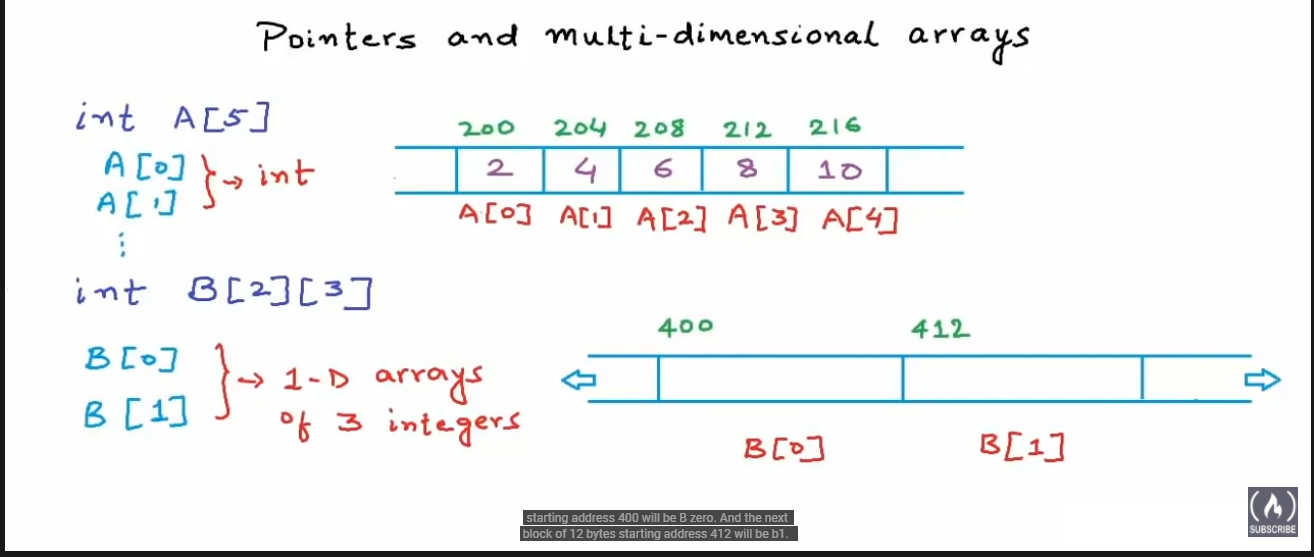 Pointers and multi-dimensional arrays
int A[5]
A[0] } → int
A[1]
⋮
200 204 208 212 216
2 4 6 8 10
A[0] A[1] A[2] A[3] A[4]
int B[2][3]
B[0] } → 1-D arrays
B[1] of 3 integers
400 412
B[0] B[1]
starting address 400 will be B zero. And the next
block of 12 bytes starting address 412 will be b1.
SUBSCRIBE